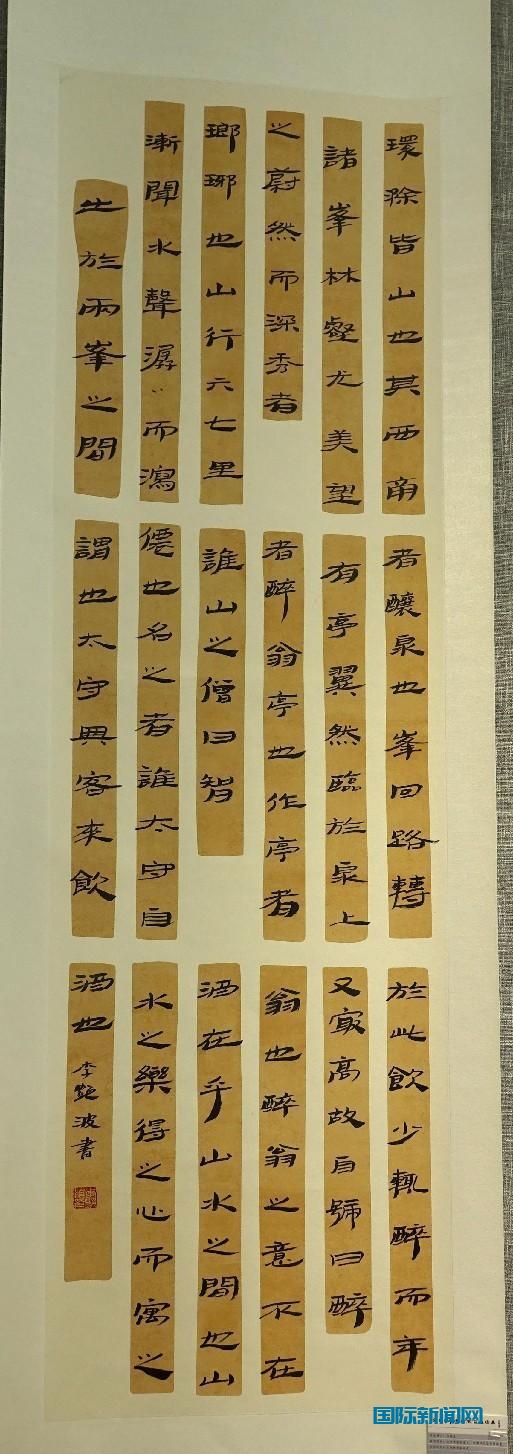 環滁皆山也其西南
諸峯林壑尤美望
之蔚然而深秀者
瑯琊也山行六七里
漸聞水聲潺〻而瀉
出於兩峯之間
者釀泉也峯回路轉
有亭翼然臨於泉上
者醉翁亭也作亭者
誰山之僧曰智
僊也名之者誰太守自
謂也太守與客來飲
於此飲少輒醉而年
又冣高故自號曰醉
翁也醉翁之意不在
酒在乎山水之間也山
水之樂得之心而寓之
酒也 李艷波書
国际新闻网